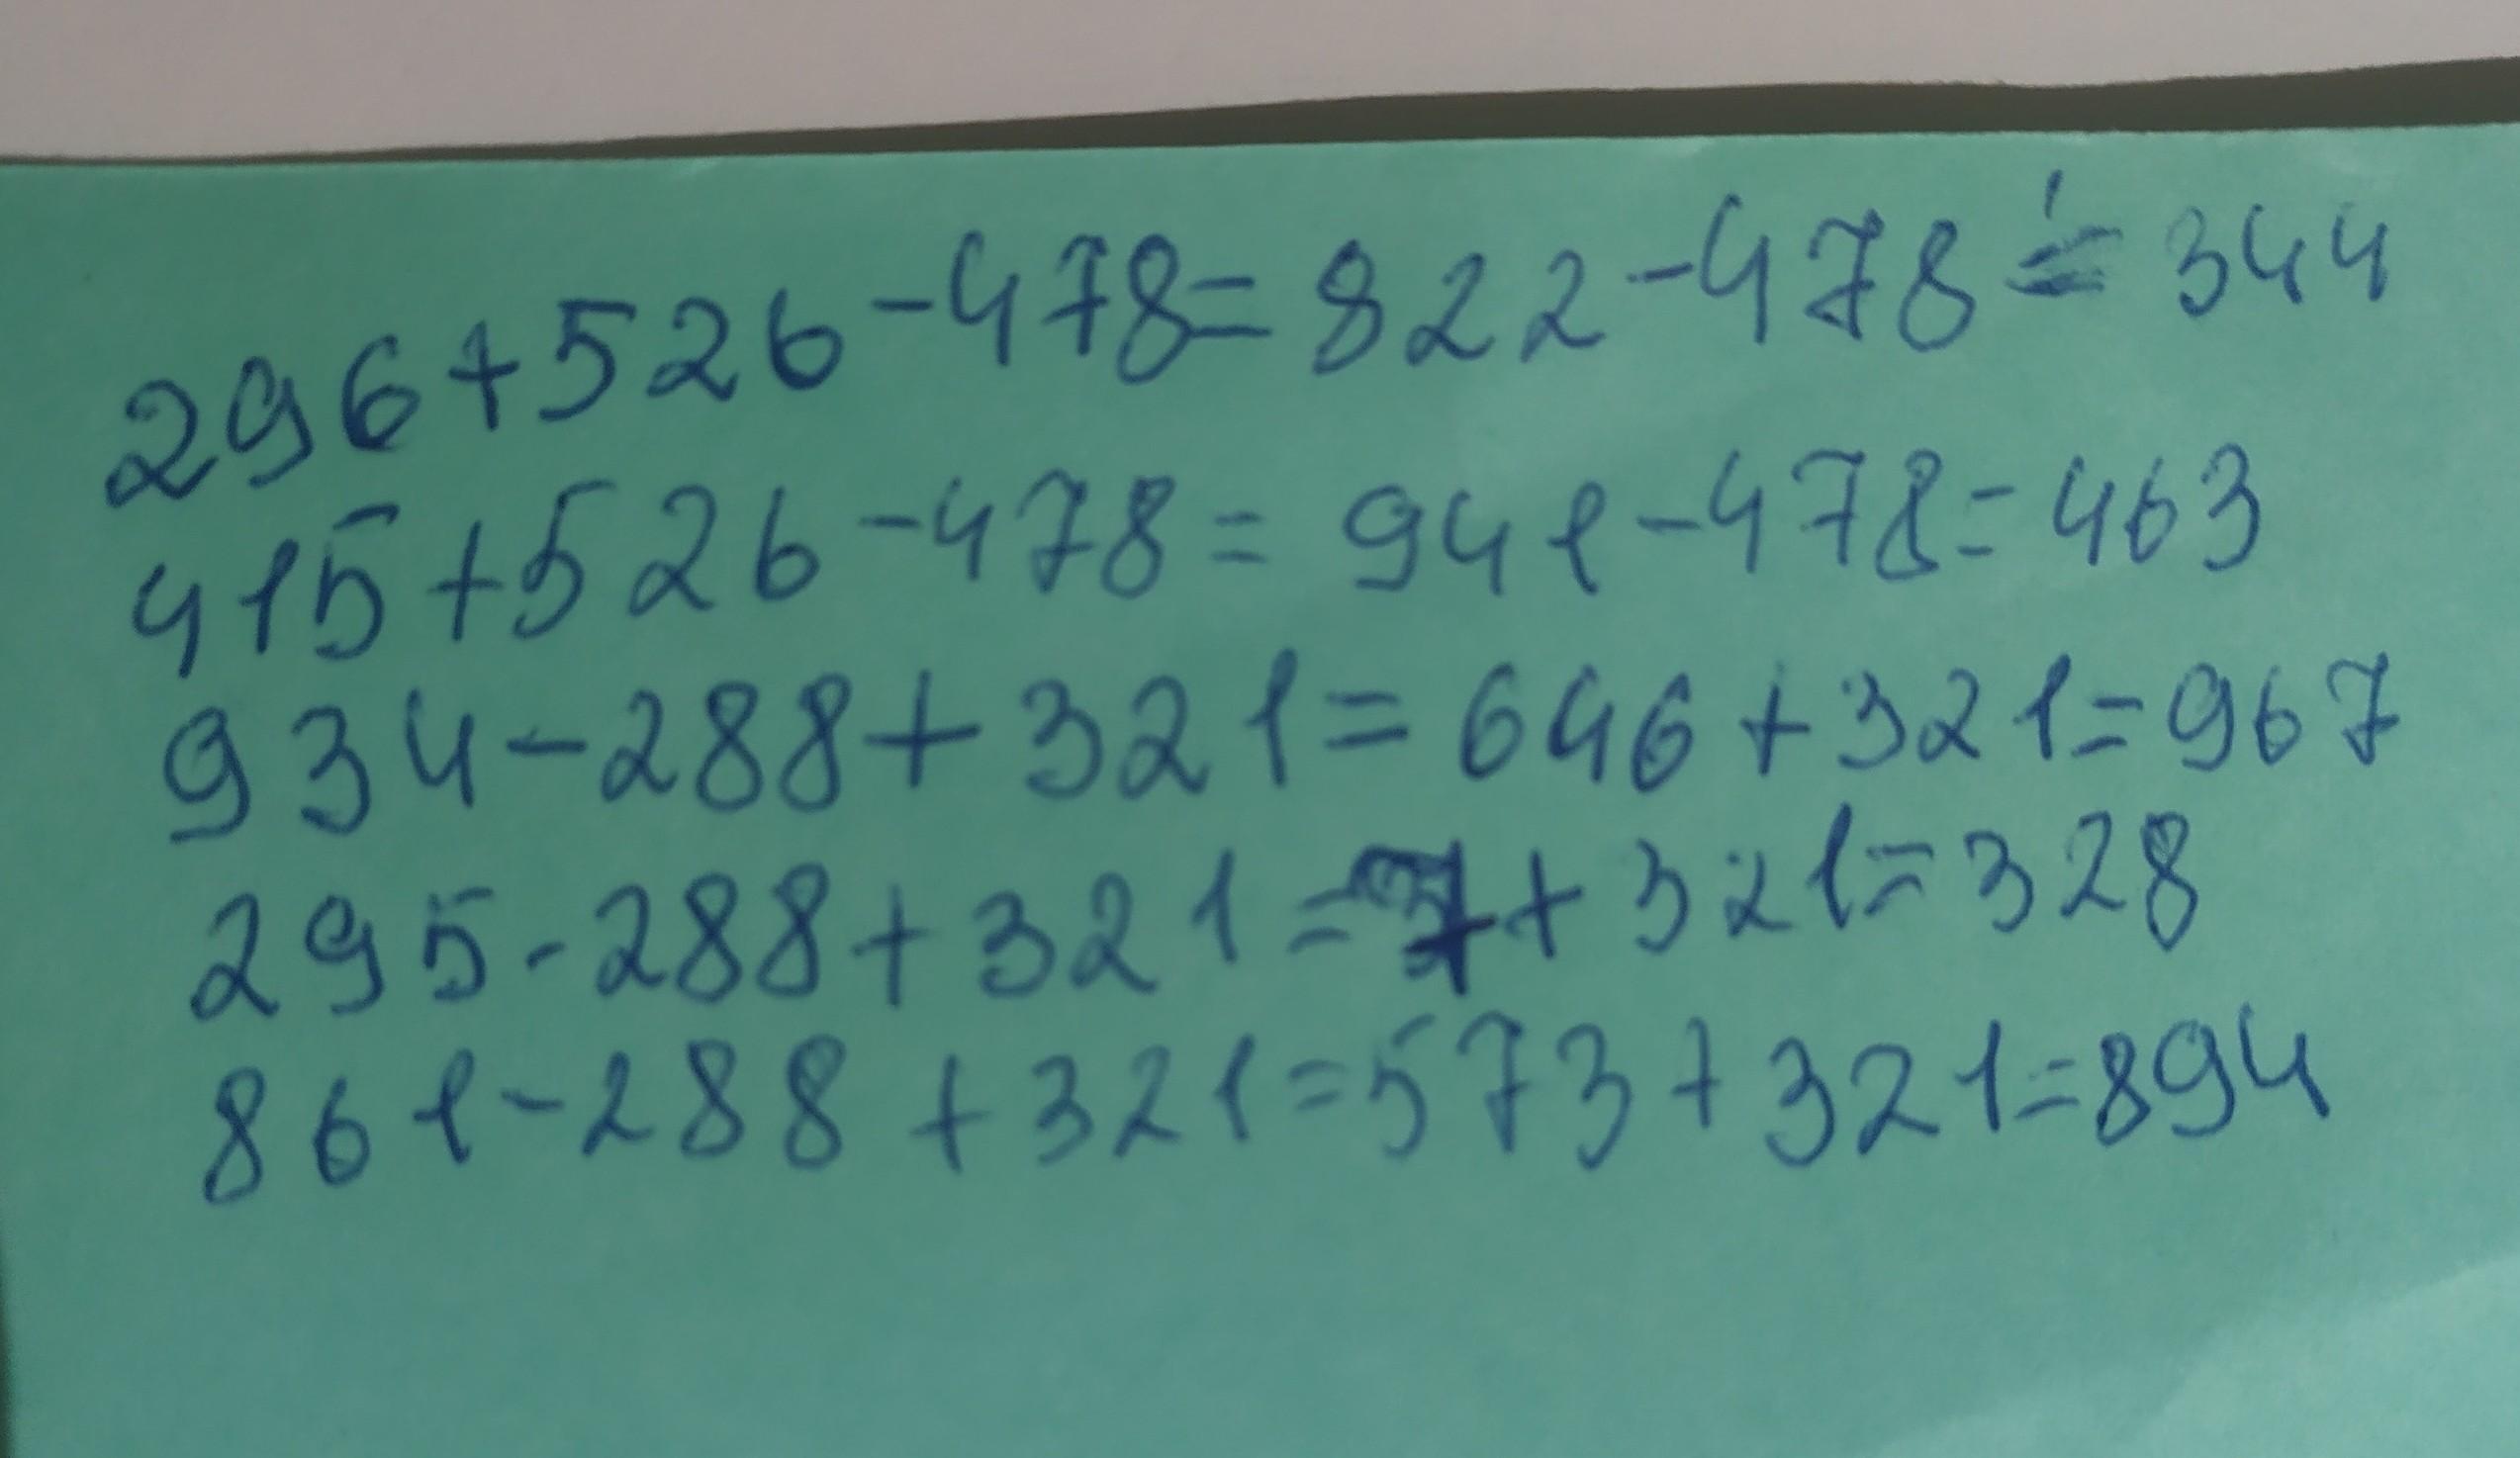 296+526-478=822-478=344
415+526-478=941-478=463
934-288+321=646+321=967
295-288+321=7+321=328
861-288+321=573+321=894